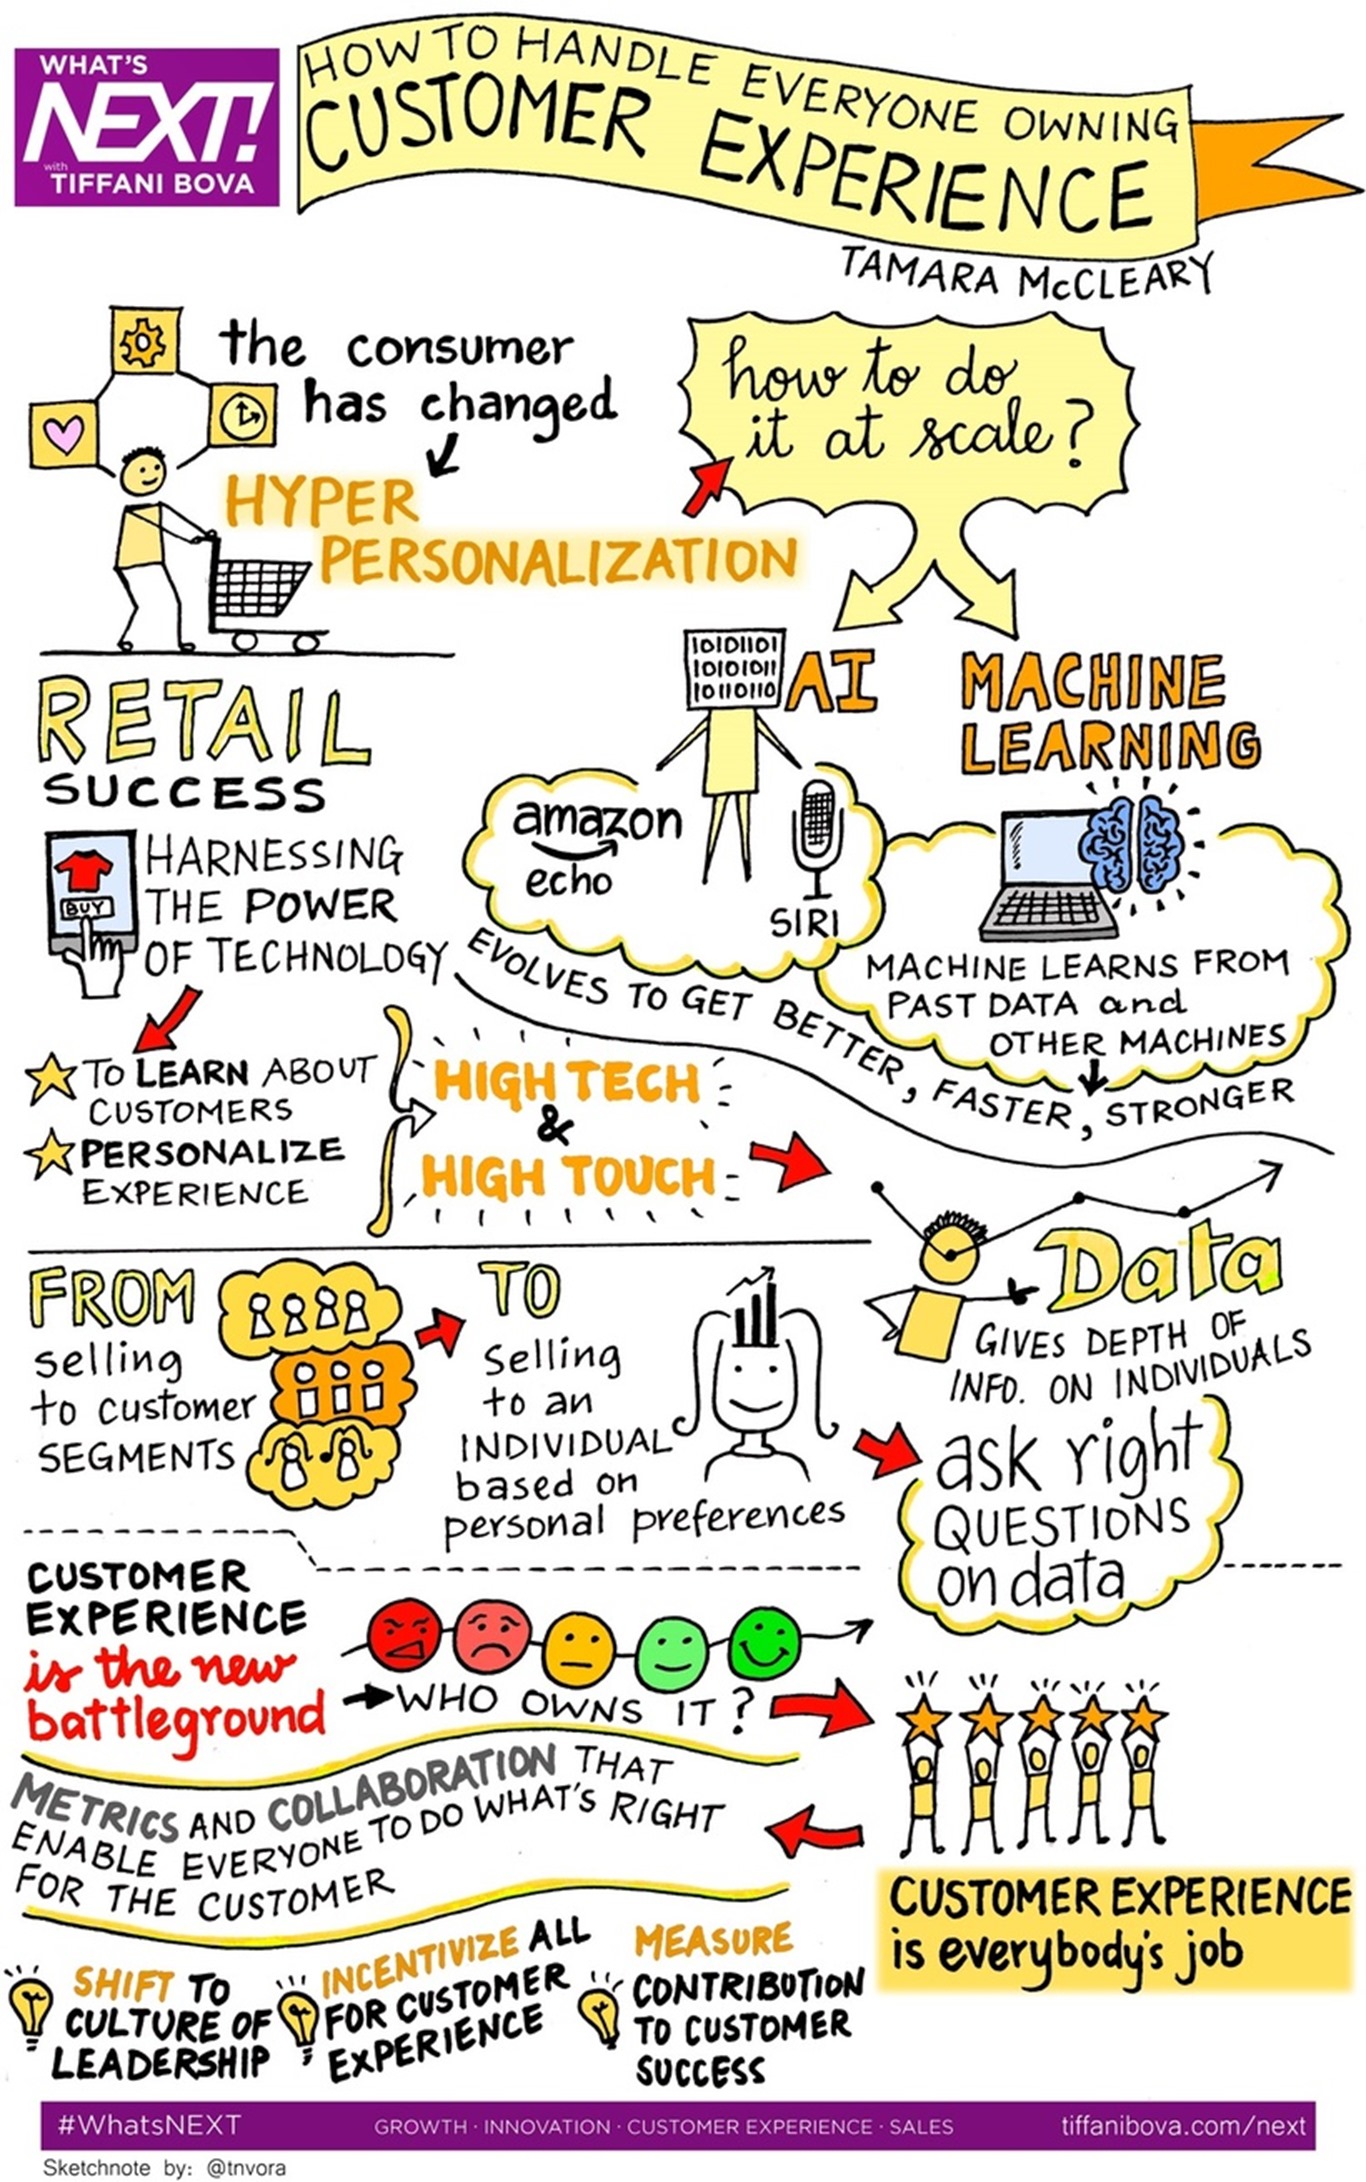 WHAT'S
NEXT!
with
TIFFANI BOVA
HOW TO HANDLE EVERYONE OWNING
CUSTOMER EXPERIENCE
TAMARA McCLEARY
the consumer
has changed
HYPER
PERSONALIZATION
how to do
it at scale?
10101101
10101011
10110110
AI
MACHINE
LEARNING
amazon
echo
SIRI
MACHINE LEARNS FROM
PAST DATA and
OTHER MACHINES
EVOLVES TO GET BETTER, FASTER, STRONGER
RETAIL
SUCCESS
BUY
HARNESSING
THE POWER
OF TECHNOLOGY
TO LEARN ABOUT
CUSTOMERS
PERSONALIZE
EXPERIENCE
HIGH TECH
&
HIGH TOUCH
Data
GIVES DEPTH OF
INFO. ON INDIVIDUALS
ask right
QUESTIONS
on data
FROM
selling
to customer
SEGMENTS
TO
Selling
to an
INDIVIDUAL
based on
personal preferences
CUSTOMER
EXPERIENCE
is the new
battleground
WHO OWNS IT?
CUSTOMER EXPERIENCE
is everybody's job
METRICS AND COLLABORATION THAT
ENABLE EVERYONE TO DO WHAT'S RIGHT
FOR THE CUSTOMER
SHIFT TO
CULTURE OF
LEADERSHIP
INCENTIVIZE ALL
FOR CUSTOMER
EXPERIENCE
MEASURE
CONTRIBUTION
TO CUSTOMER
SUCCESS
#WhatsNEXT
GROWTH · INNOVATION · CUSTOMER EXPERIENCE · SALES
tiffanibova.com/next
Sketchnote by: @tnvora